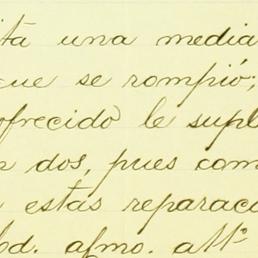 ita una media
que se rompió;
ofrecido le supl
n dos, pues com
estas reparac
bd. afmo. att°